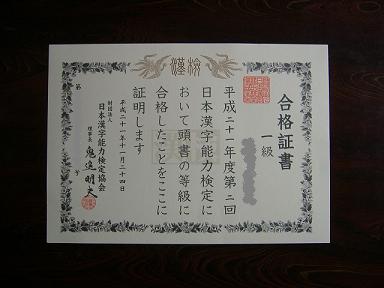 漢検
合格証書
一級
平成二十一年度第二回
日本漢字能力検定に
おいて頭書の等級に
合格したことをここに
証明します
平成二十一年十一月二十四日
財団法人
日本漢字能力検定協会
理事長 鬼追明夫
第
号